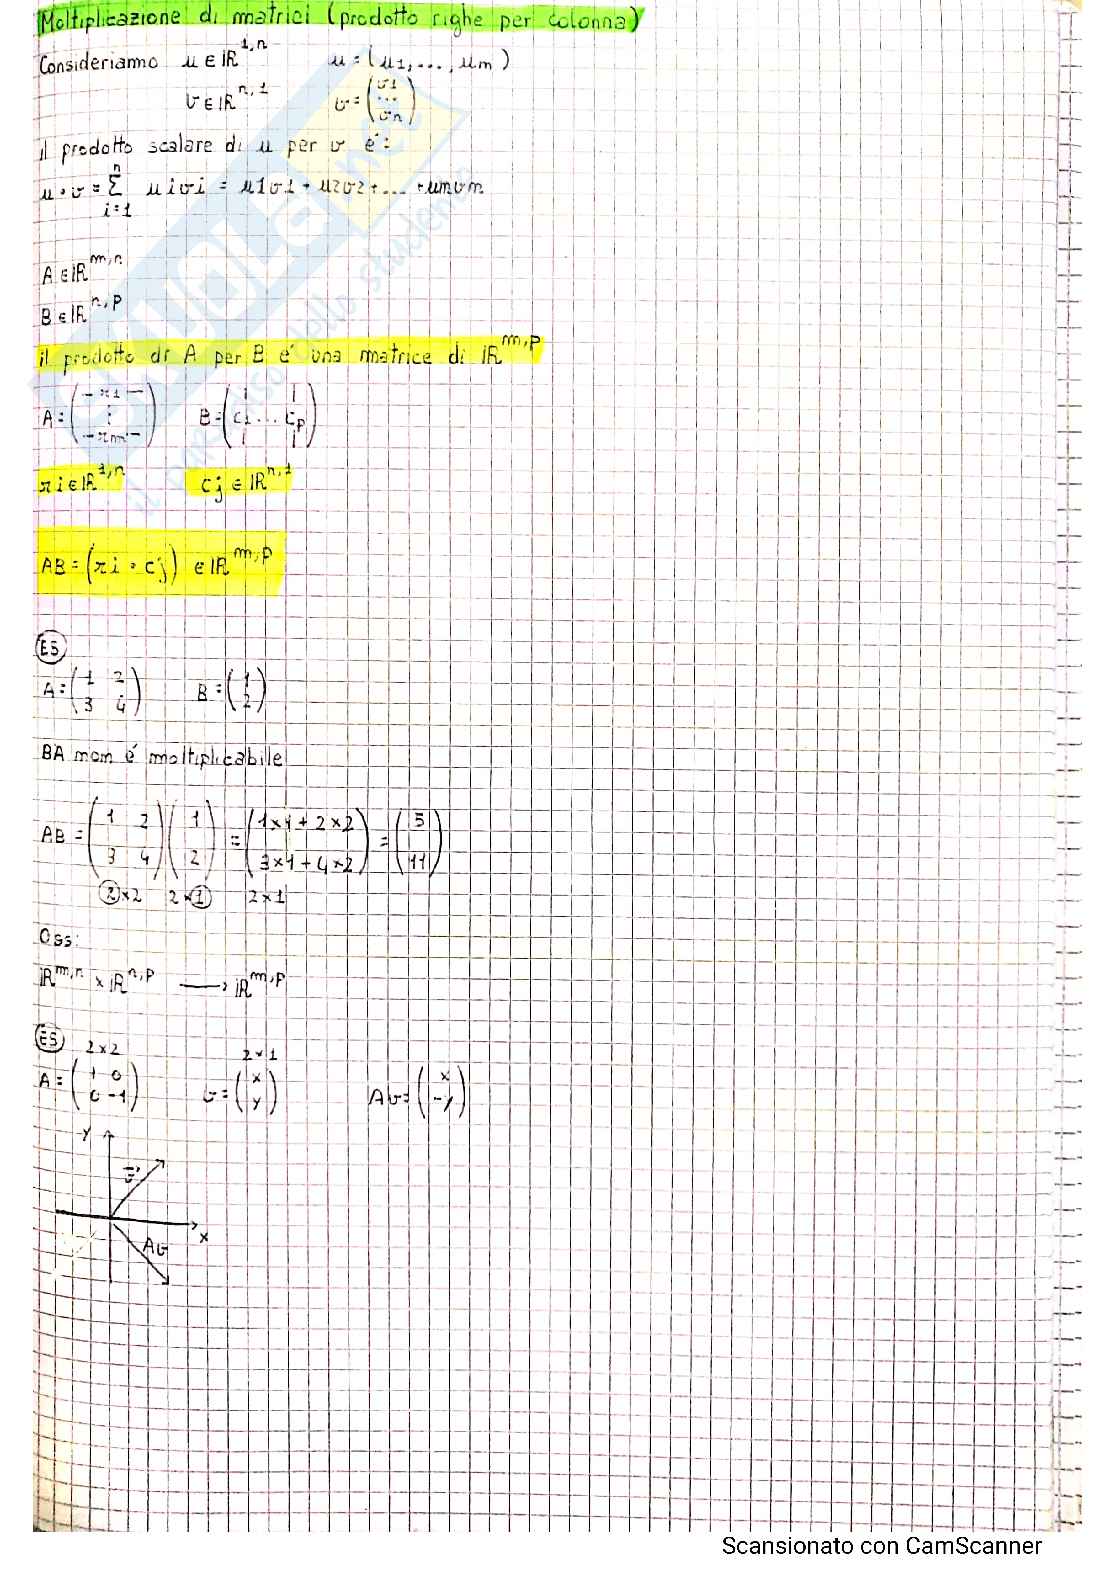 Moltiplicazione di matrici (prodotto righe per colonna)
Consideriamo u ∈ ℝ^1,n u = (u1, ..., un)
v ∈ ℝ^n,1 v = (v1 ... vn)
il prodotto scalare di u per v é:
u · v = Σ i=1 n uivi = u1v1 + u2v2 + ... + unvn
A ∈ ℝ^m,n
B ∈ ℝ^n,p
il prodotto di A per B é una matrice di ℝ^m,p
A = (– r1 – ⋮ – rm –) B = (| c1 | ... | cp |)
ri ∈ ℝ^1,n cj ∈ ℝ^n,1
AB = (ri · cj) ∈ ℝ^m,p
ES
A = (1 2 3 4) B = (1 2)
BA non é moltiplicabile
AB = (1 2 3 4)(1 2) = (1×1 + 2×2 3×1 + 4×2) = (5 11)
2×2 2×1 2×1
Oss:
ℝ^m,n × ℝ^n,p → ℝ^m,p
ES 2×2 2×1
A = (1 0 0 -1) v = (x y) Av = (x -y)
Y
v
x
Av
SKUOLA.net
il paradiso dello studente
Scansionato con CamScanner